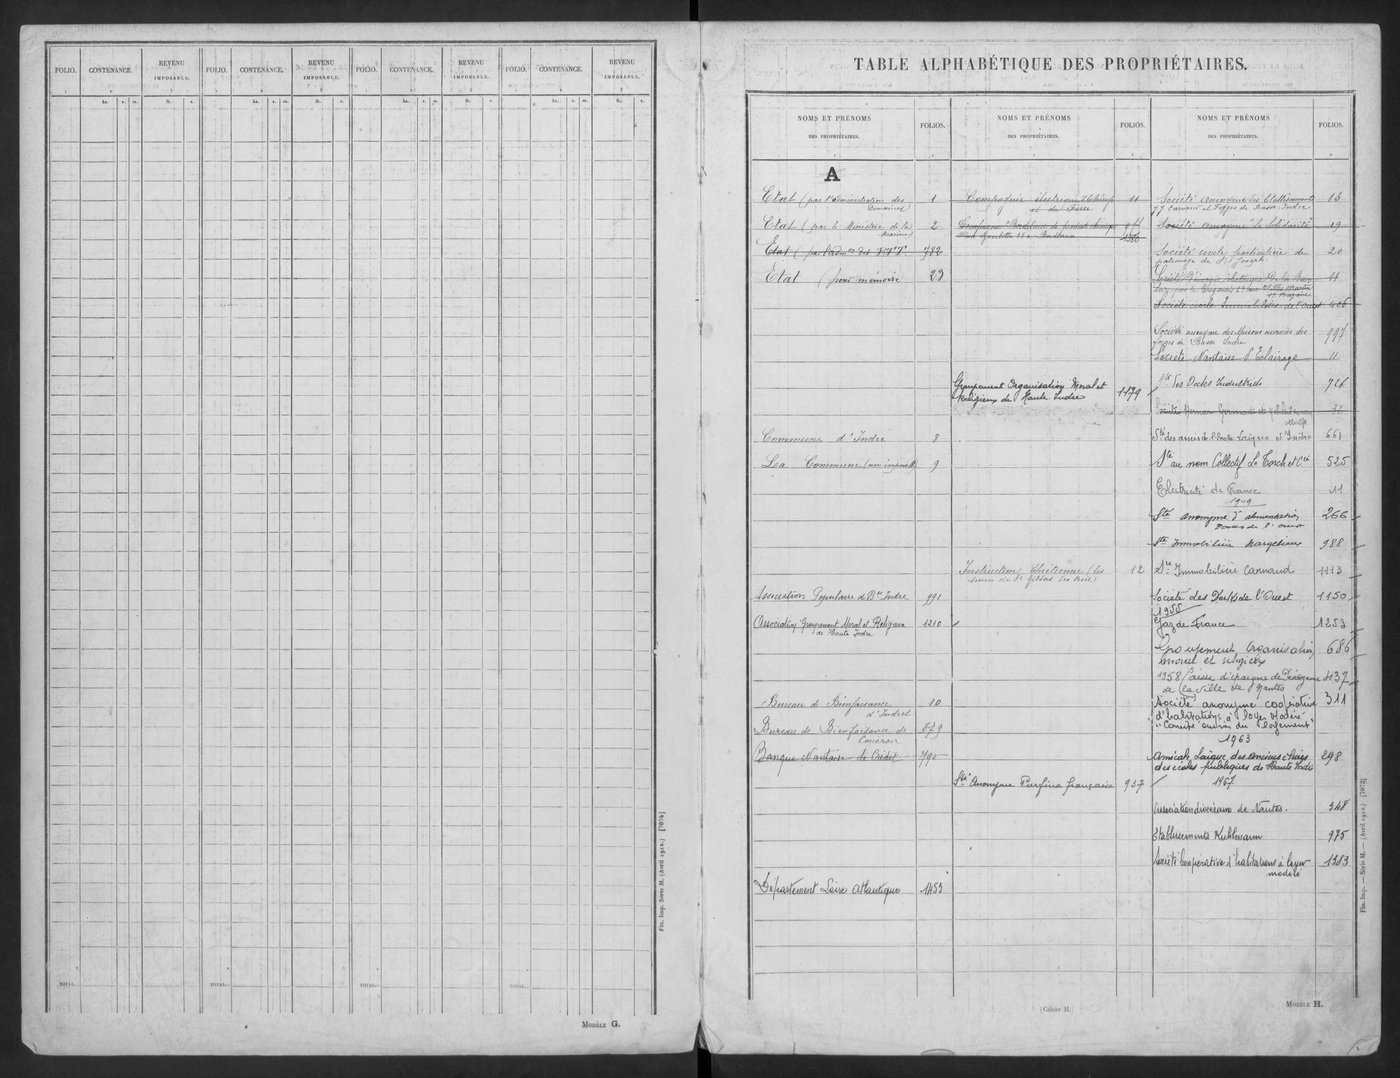 FOLIO. CONTENANCE. REVENU IMPOSABLE. FOLIO. CONTENANCE. REVENU IMPOSABLE. FOLIO. CONTENANCE. REVENU IMPOSABLE. FOLIO. CONTENANCE. REVENU IMPOSABLE.
ha. a. ca. fr. c. ha. a. ca. fr. c. ha. a. ca. fr. c. ha. a. ca. fr. c.
TOTAL. TOTAL. TOTAL. TOTAL.
Fin. Imp. Série M. (Avril 1912.) [7074]
MODÈLE G.
TABLE ALPHABÉTIQUE DES PROPRIÉTAIRES.
NOMS ET PRÉNOMS DES PROPRIÉTAIRES. FOLIOS. NOMS ET PRÉNOMS DES PROPRIÉTAIRES. FOLIOS. NOMS ET PRÉNOMS DES PROPRIÉTAIRES. FOLIOS.
A
Etat (par l'administration des Domaines) 1
Etat (par le Ministère de la Marine) 2
Etat (par l'adm des P.T.T. 782
Etat (pour mémoire 23
Commune d'Indre 8
La Commune (non imposable) 9
Association Populaire de Bse Indre 991
Association Groupement Moral et Religieux
de Haute Indre 1210
Bureau de Bienfaisance
d'Indret 10
Bureau de Bienfaisance de
Couëron 879
Banque Nantaise de Crédit 790
Département Loire Atlantique 1453
Compagnie électrique 11
Groupement Organisation Moral et
Religieux de Haute Indre 1179
Instruction Chrétienne (les
soeurs de St Gildas des Bois) 12
Sté Anonyme Purfina française 937
Société Anonyme des Etablissements
J.J. Carnaud et Forges de Basse Indre 13
Société Anonyme "La Solidarité" 19
Société civile particulière de
patronage de St Joseph. 20
Société civile Immobilière de l'Ouest 406
Société anonyme des Maisons ouvrières des
forges de Basse Indre 997
Société Nantaise d'Eclairage 11
Sté des Docks Industriels 726
Sté des amis de l'école Laïque d'Indre 661
Sté au nom Collectif Le Torch et Cie 525
Electricité de France 11
1949
Sté anonyme d'alimentation
Docks de l'ouest 266
Sté Immobilière 988
Sté Immobilière Carnaud 1113
Société des Docks de l'Ouest 1150
1955
Gaz de France 1253
Groupement, Organisation,
moral et religieux 686
1958 Caisse d'épargne de Prévoyance
de la ville de Nantes 437
Société anonyme coopérative
d'habitations à loyer Modéré
"Comité du logement" 311
1963
Amicale Laïque des Anciens élèves
des écoles publiques de Haute Indre 298
1967
Association diocésaine de Nantes. 348
Etablissements Kuhlmann 975
Société Coopérative d'habitations à loyer
modéré 1353
Fin. Imp. — Série M. — (Avril 1912.) [7075]
[Cahier H.]
MODÈLE H.